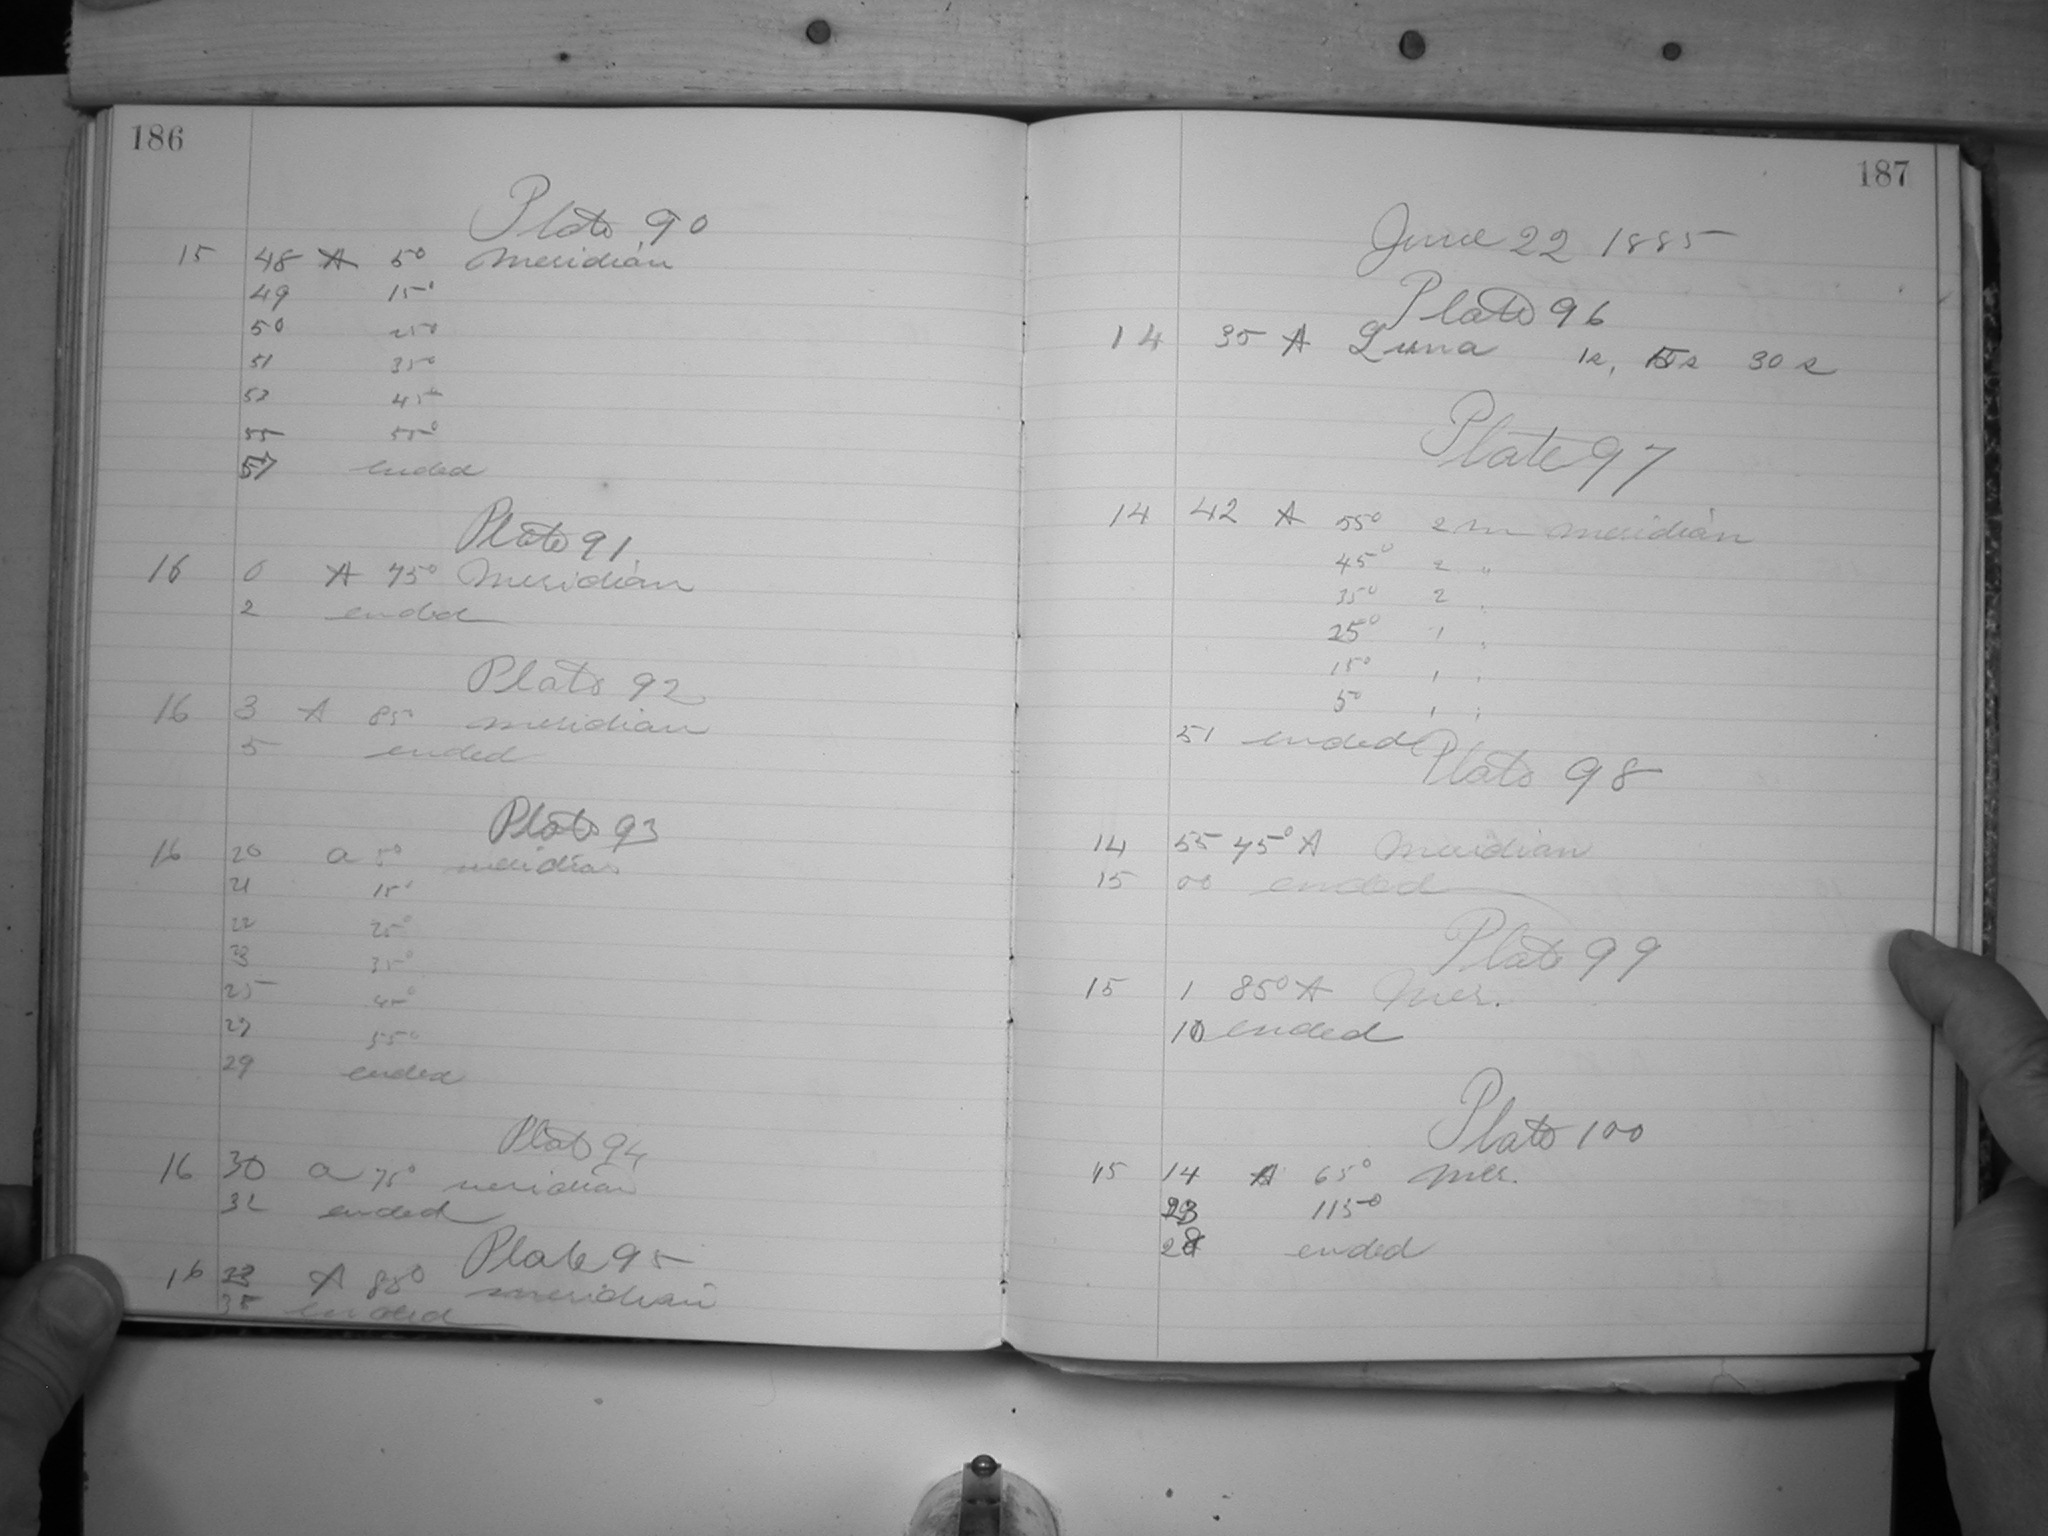 186
Plate 90
15 48 A 5° meridian
49 15°
50 25°
51 35°
53 45°
55 55°
57 ended
Plate 91
16 0 A 75° Meridian
2 ended
Plate 92
16 3 A 85° meridian
5 ended
Plate 93
16 20 a 5° meridian
21 15°
22 25°
23 35°
25 45°
27 55°
29 ended
Plate 94
16 30 a 75° meridian
32 ended
Plate 95
16 33 A 85° meridian
35 ended
187
June 22 1885
Plate 96
14 35 A Luna 1s, 15s 30s
Plate 97
14 42 A 55° 2 m meridian
45° 2 "
35° 2 "
25° 1 "
15° 1 "
5° 1 "
51 ended
Plate 98
14 55 75° A Meridian
15 00 ended
Plate 99
15 1 85° A Mer.
10 ended
Plate 100
15 14 A 65° Mer.
23 115°
28 ended